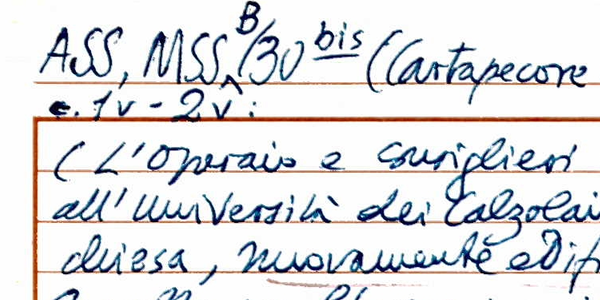 ASS, MSS, B/30 bis (Cartapecore
c. 1v - 2v:
(L'operaio e consiglieri
all'università dei Calzolai
chiesa, nuovamente edif